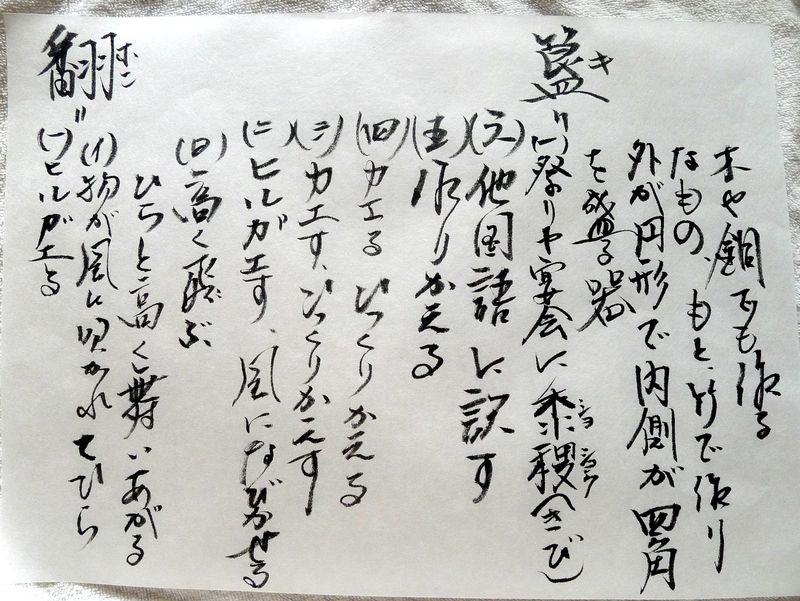 翻ホン〃
(一)ヒルガエる
(イ)物が風に吹かれてひら
ひらと高く舞いあがる
(ロ)高く飛ぶ
(二)ヒルガエす、風になびかせる
(三)カエす、ひっくりかえす
(四)カエる ひっくりかえる
(五)作りかえる
(六)他国語に訳す
簋キ〃
(一)祭りや宴会に黍稷ショショク(きび)
を盛る器
外が円形で内側が四角
なもの、もと、竹で作り
木や銅でも作る